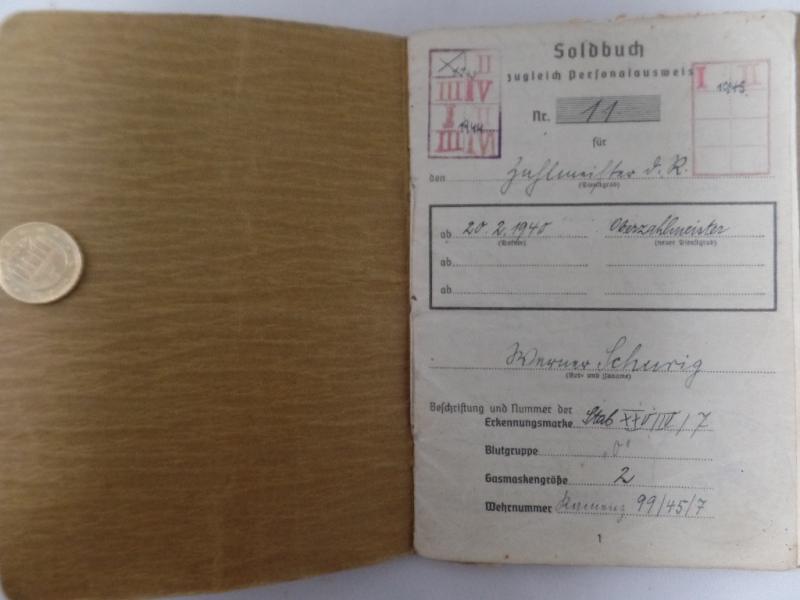 Soldbuch
zugleich Personalausweis
II
VI III
I II
1944
VI III
I II
10/45
Nr. 11
für
den Zahlmeister d. R.
(Dienstgrad)
ab 20.2.1940 Oberzahlmeister
(Datum) (neuer Dienstgrad)
ab
ab
Werner Schurig
(Vor- und Zuname)
Beschriftung und Nummer der
Erkennungsmarke Stab /IV/7
Blutgruppe „0"
Gasmaskengröße 2
Wehrnummer Kamenz 99/45/7
1